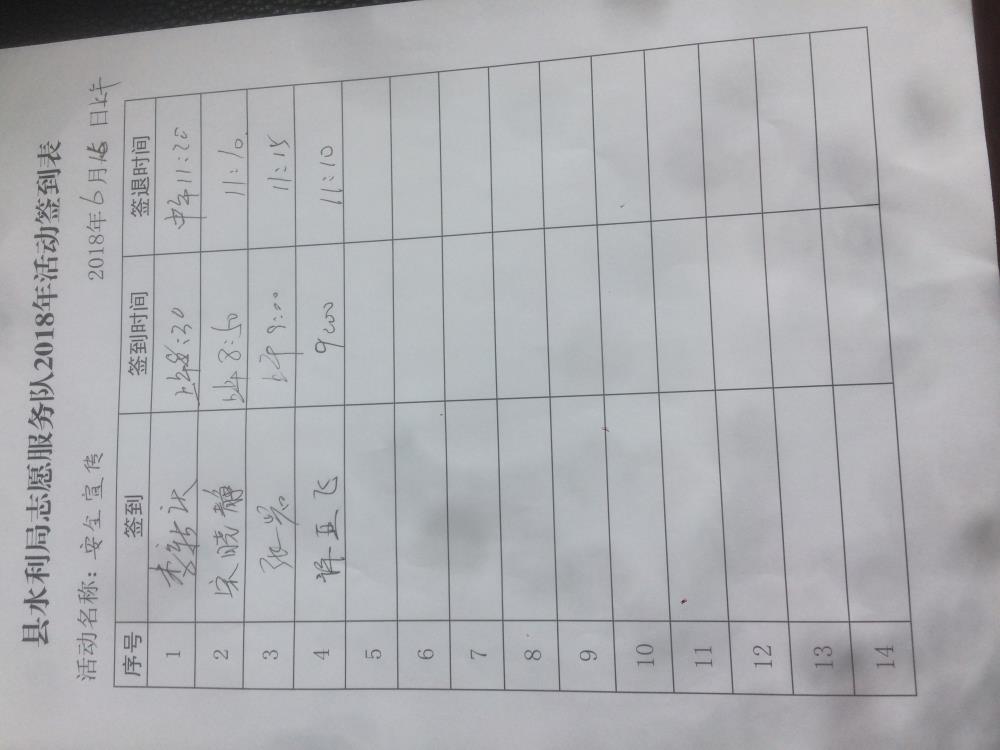 县水利局志愿服务队2018年活动签到表
活动名称：安全宣传 2018年6月16日上午
序号 签到 签到时间 签退时间
1 李新沃 上午8:30 中午11:20
2 宋晓静 上午8:50 11:10
3 张岩 上午9:00 11:15
4 许亚飞 9:00 11:10
5
6
7
8
9
10
11
12
13
14